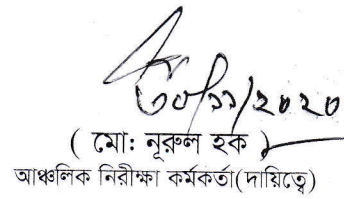 ৩০/১১/২০২০
( মো: নূরুল হক )
আঞ্চলিক নিরীক্ষা কর্মকর্তা(দায়িত্বে)